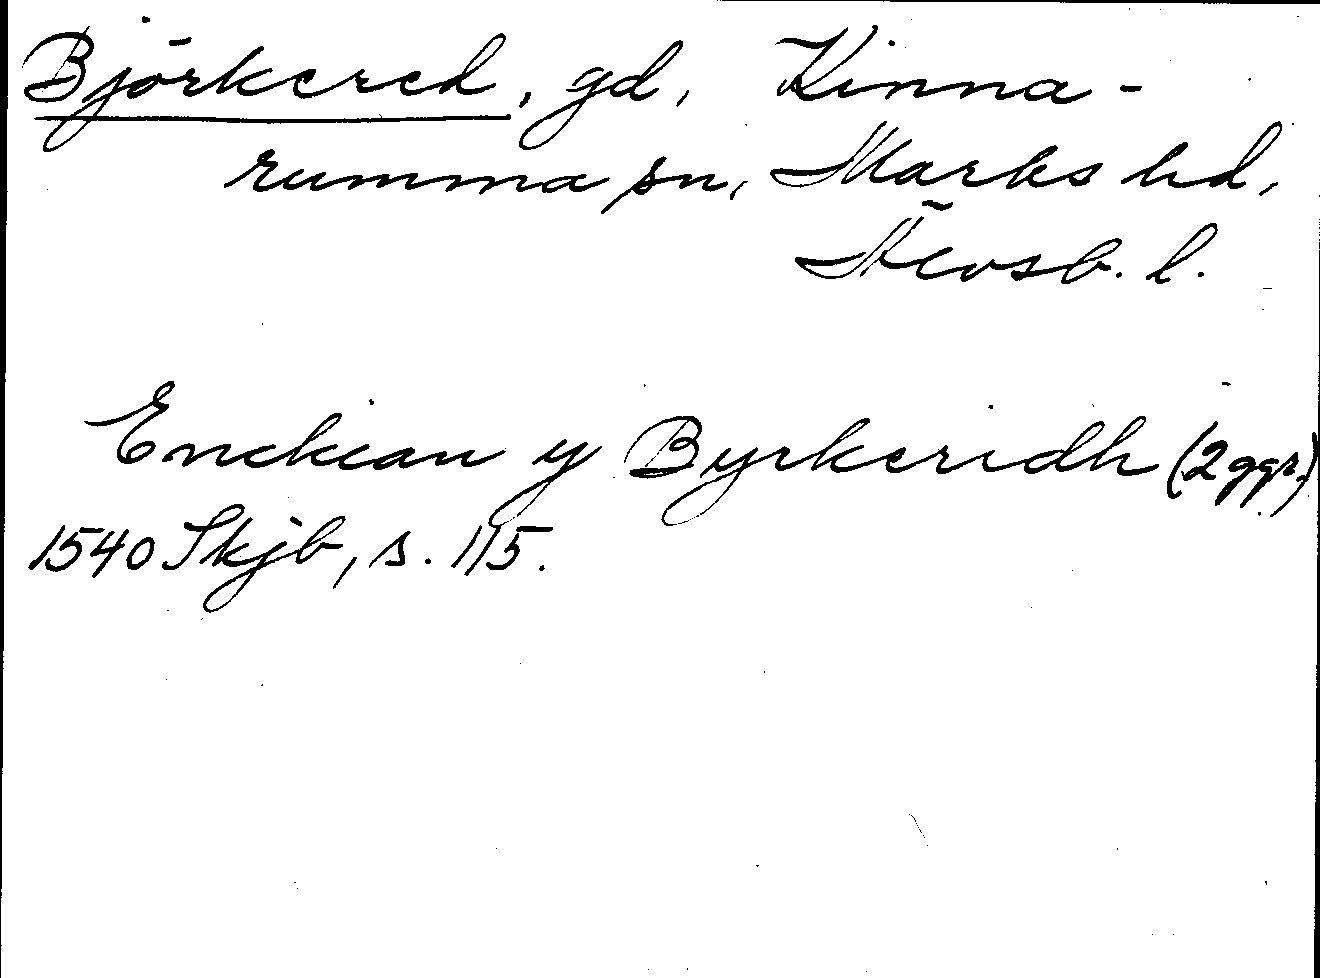 Björkered, gd, Kinna-
rumma sn, Marks hd,
Älvsb. l.
Enckian y Byrkeridh (2 ggr.)
1540 Skjb, s. 115.